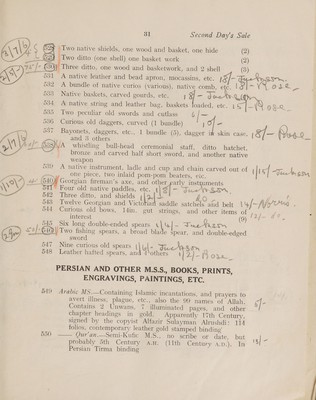 31 Second Day's Sale
528 Two native shields, one wood and basket, one hide (2)
529 Two ditto (one shell) one basket work (2)
530 Three ditto, one wood and basketwork, and 2 shell (3)
531 A native leather and bead apron, mocassins, etc. 18/- Jackson
532 A bundle of native curios (various), native comb, etc. 18/- Mose
533 Native baskets, carved gourds, etc. Jackson
534 A native string and leather bag, baskets loaded, etc. 15/- Mose
535 Two peculiar old swords and cutlass
536 Curious old daggers, curved (1 bundle)
537 Bayonets, daggers, etc., 1 bundle (5), dagger in skin case, 18/- Mose
and 3 others
538 A whistling bull-head ceremonial staff, ditto hatchet,
bronze and carved bull short sword, and another native
weapon
539 A native instrument, ladle and cup and chain carved out of
one piece, two inlaid pom-pom beaters, etc.
540 Georgian fireman's axe, and other curly instruments
541 Four old native paddles, etc. Jackson
542 Three ditto, and shields
543 Twelve Georgian and Victorian saddle satchels and belt
544 Curious old bows, 14in. gut strings, and other items of
interest (9)
545 Six long double-ended spears Jackson
546 Two fishing spears, a broad blade spear, and double-edged
sword
547 Nine curious old spears Jackson
548 Leather hafted spears, and others Mose
PERSIAN AND OTHER M.S.S., BOOKS, PRINTS,
ENGRAVINGS, PAINTINGS, ETC.
549 Arabic MS.—Containing Islamic incantations, and prayers to
avert illness, plague, etc., also the 99 names of Allah.
Contains 2 Unwans, 7 illuminated pages, and other
chapter headings in gold. Apparently 17th Century,
signed by the copyist Alfazir Sulayman Alrushdi: 114
folios, contemporary leather gold stamped binding
550 —— Qur'an.—Semi-Kufic M.S., no scribe or date, but
probably 5th Century A.H. (11th Century A.D.). In
Persian Tirma binding